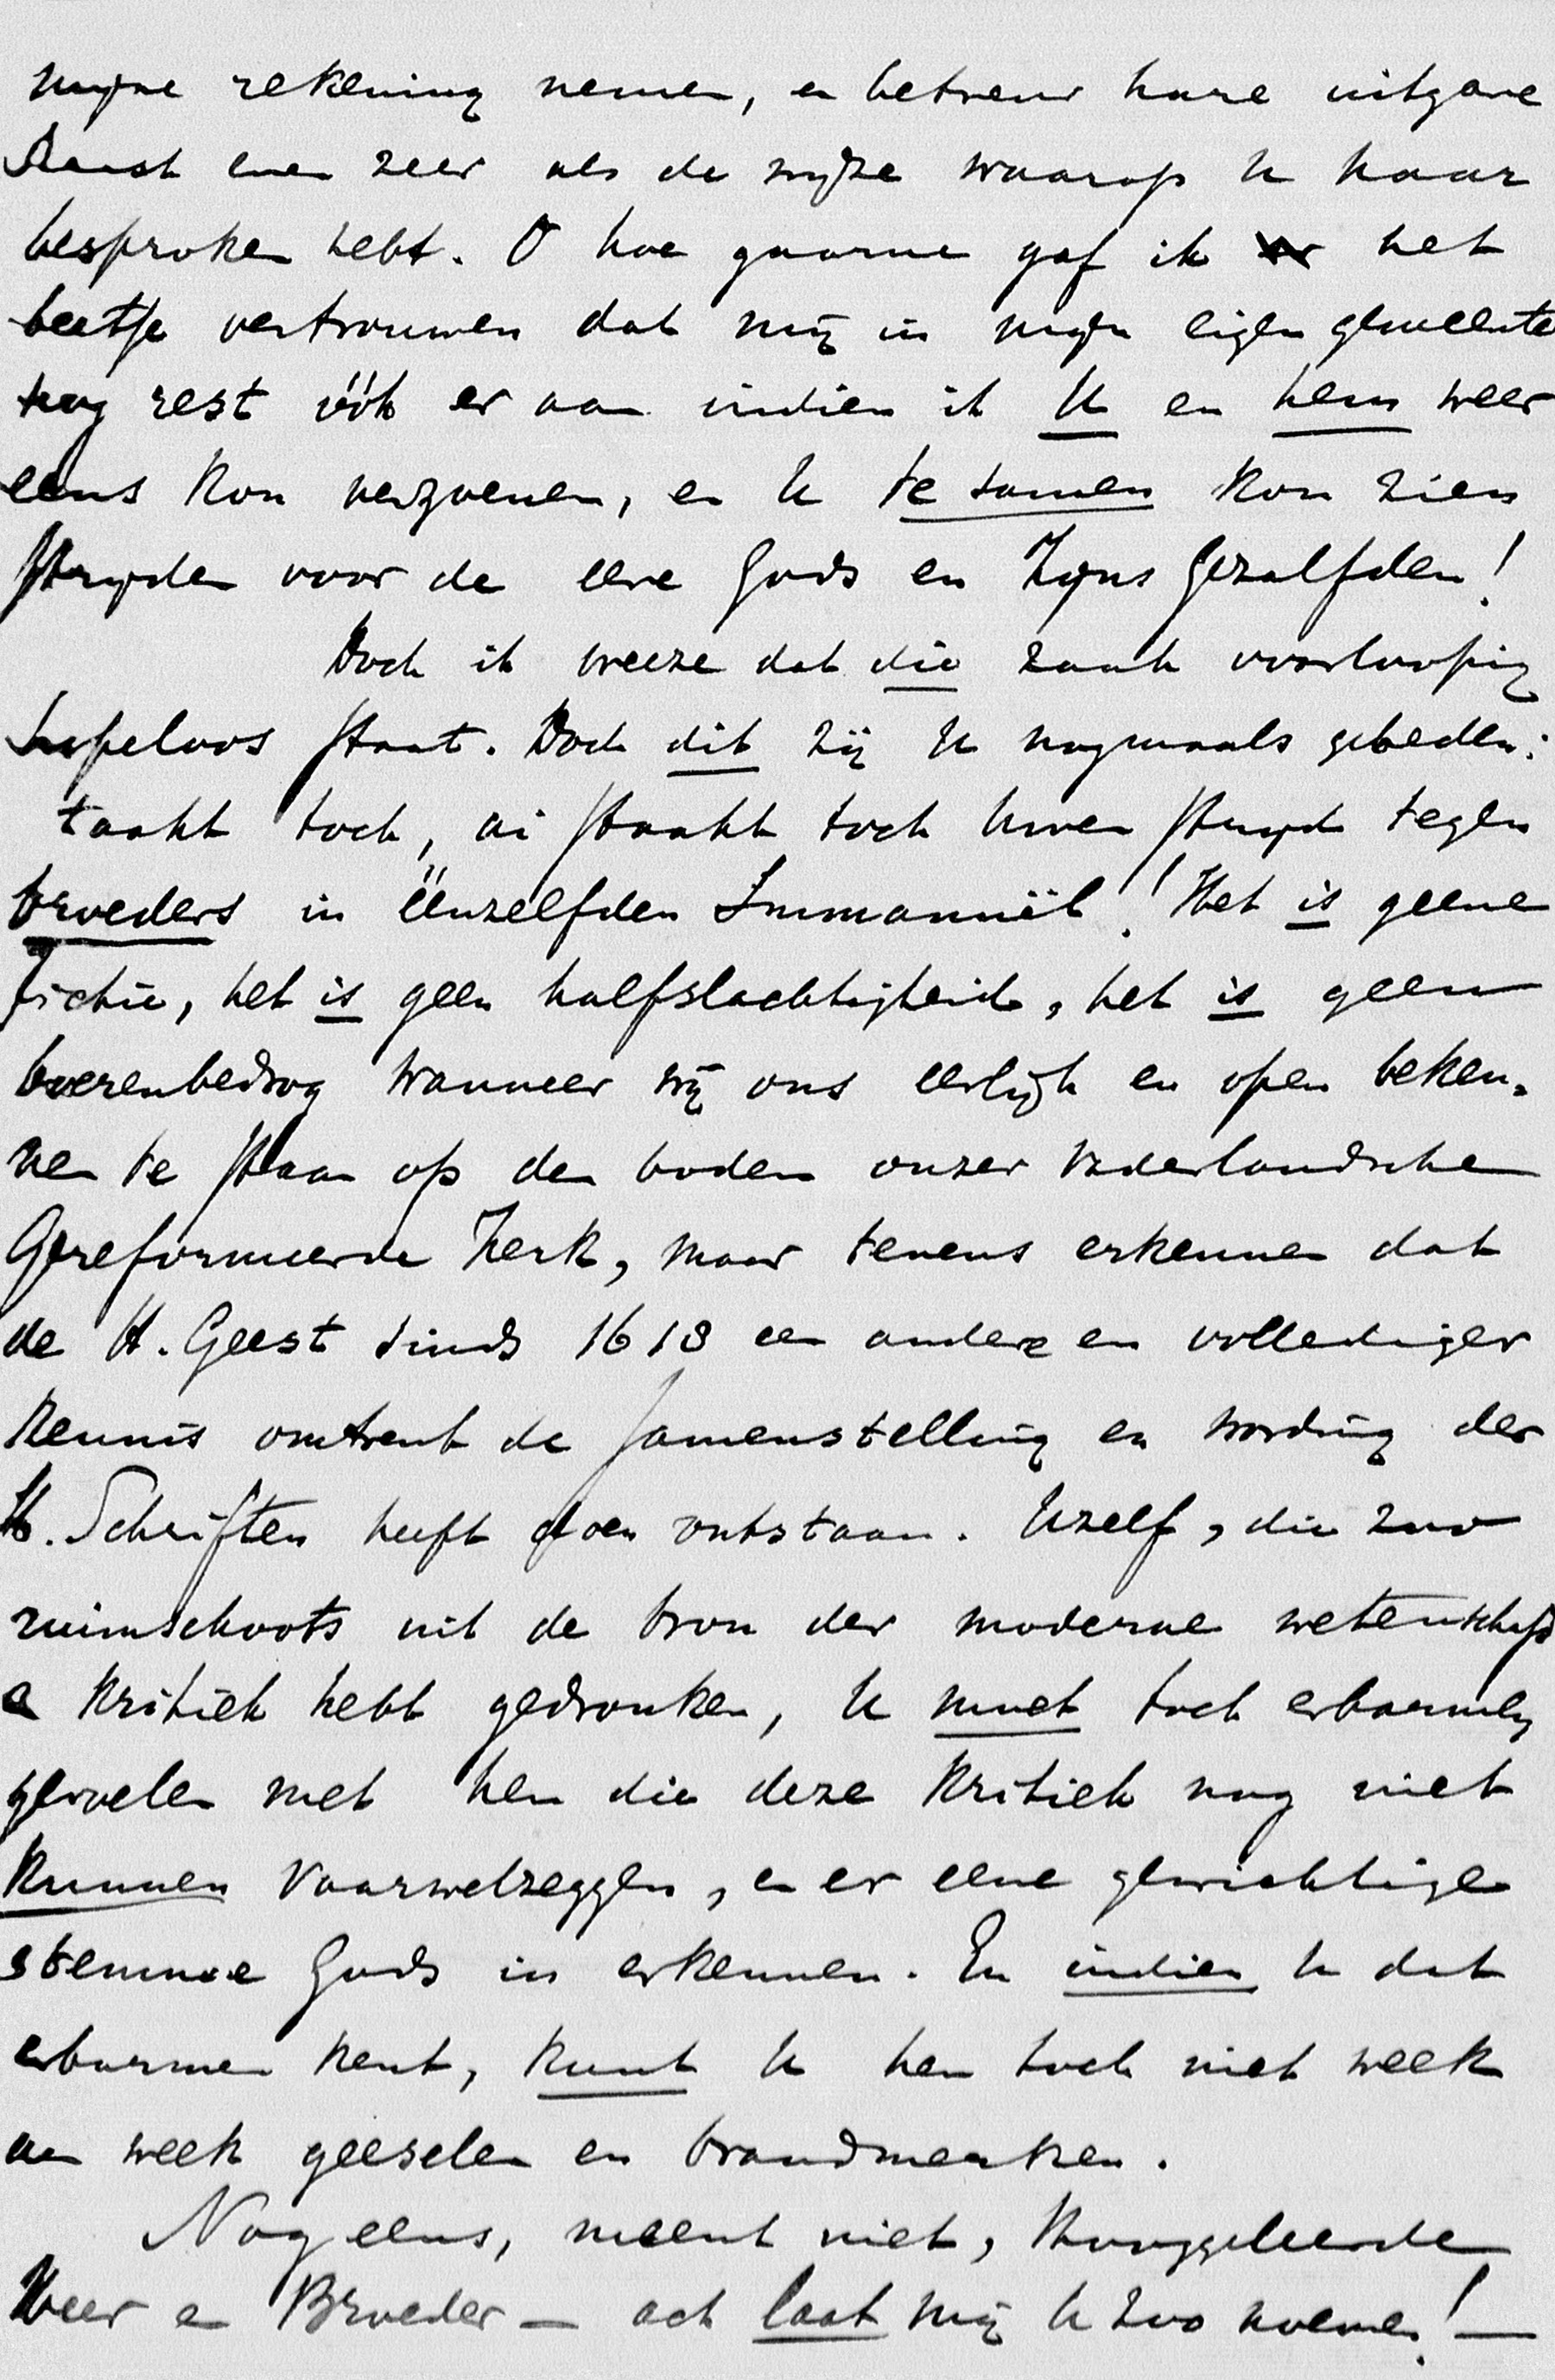 mijne rekening nemen, en betreur hare uitgave
haast even zeer als de wijze waarop U haar
besproken hebt. O hoe gaarne gaf ik het
beetje vertrouwen dat mij in mijn eigen gemeente
nog rest óók er aan indien ik U en hem weer
eens kon verzoenen, en U te samen kon zien
strijden voor de eere Gods en Zijns Gezalfden!
Doch ik vreeze dat die zaak voorloopig
hopeloos staat. Doch dit zij U nogmaals gebeden:
staakt toch, ai staakt toch Uwen strijd tegen
broeders in éénzelfden Immanuël! Het is geene
fictie, het is geen halfslachtigheid, het is geen
boerenbedrog wanneer wij ons eerlijk en open beken-
nen te staan op den bodem onzer vaderlandsche
Gereformeerde Kerk, maar tevens erkennen dat
de H. Geest sinds 1618 een andere en vollediger
kennis omtrent de samenstelling en wording der
H. Schriften heeft doen ontstaan. Uzelf, die zoo
ruimschoots uit de bron der moderne wetenschap
en kritiek hebt gedronken, U moet toch erbarming
gevoelen met hen die deze kritiek nog niet
kunnen vaarwelzeggen, en er eene gewichtige
stemme Gods in erkennen. En indien U dat
erbarmen kent, kunt U hen toch niet week
aan week geeselen en brandmerken.
Nog eens, meent niet, Hooggeleerde
Heer en Broeder — ach laat mij U zoo noemen! —